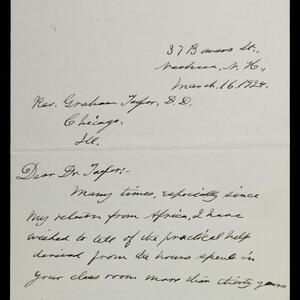 37 Bowers St.,
Nashua, N. H.,
March. 16. 1924.
Rev. Graham Taylor, D. D.
Chicago.
Ill.
Dear Dr. Taylor:-
Many times, especially since
my return from Africa, I have
wished to tell of the practical help
derived from the hours spent in
your class room more than thirty years